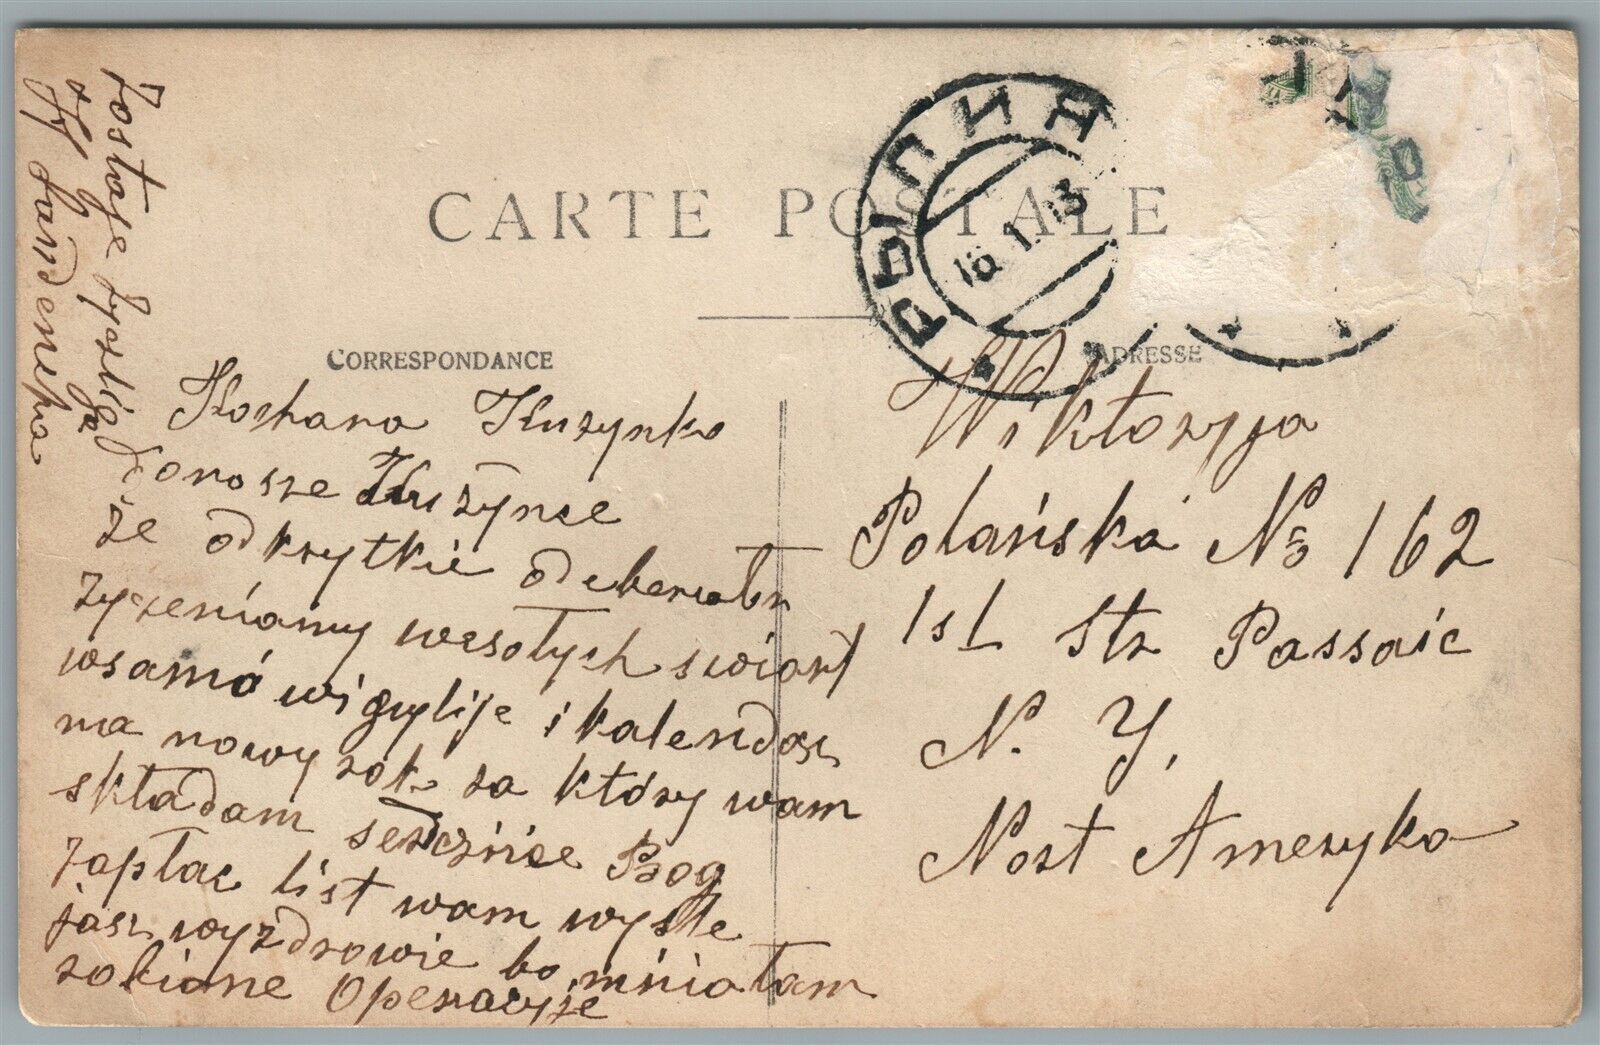 CARTE POSTALE
РЫПИН
16.1.13
CORRESPONDANCE
ADRESSE
Kochana Kuzynko
donosze Kuzynce
że odkrytkie odebrałem
życzeniamy wesołych swiont
wsamó wigylije i kalendarz
na nowy rok za który wam
składam serdeznie Bog
zapłac list wam wysle
jasz wyzdrowie bo mniałam
robione Operacyje
Zostaje życzliga
Wiktoryja
Polańska № 162
1st Str Passaic
N. Y,
Nort Ameryka